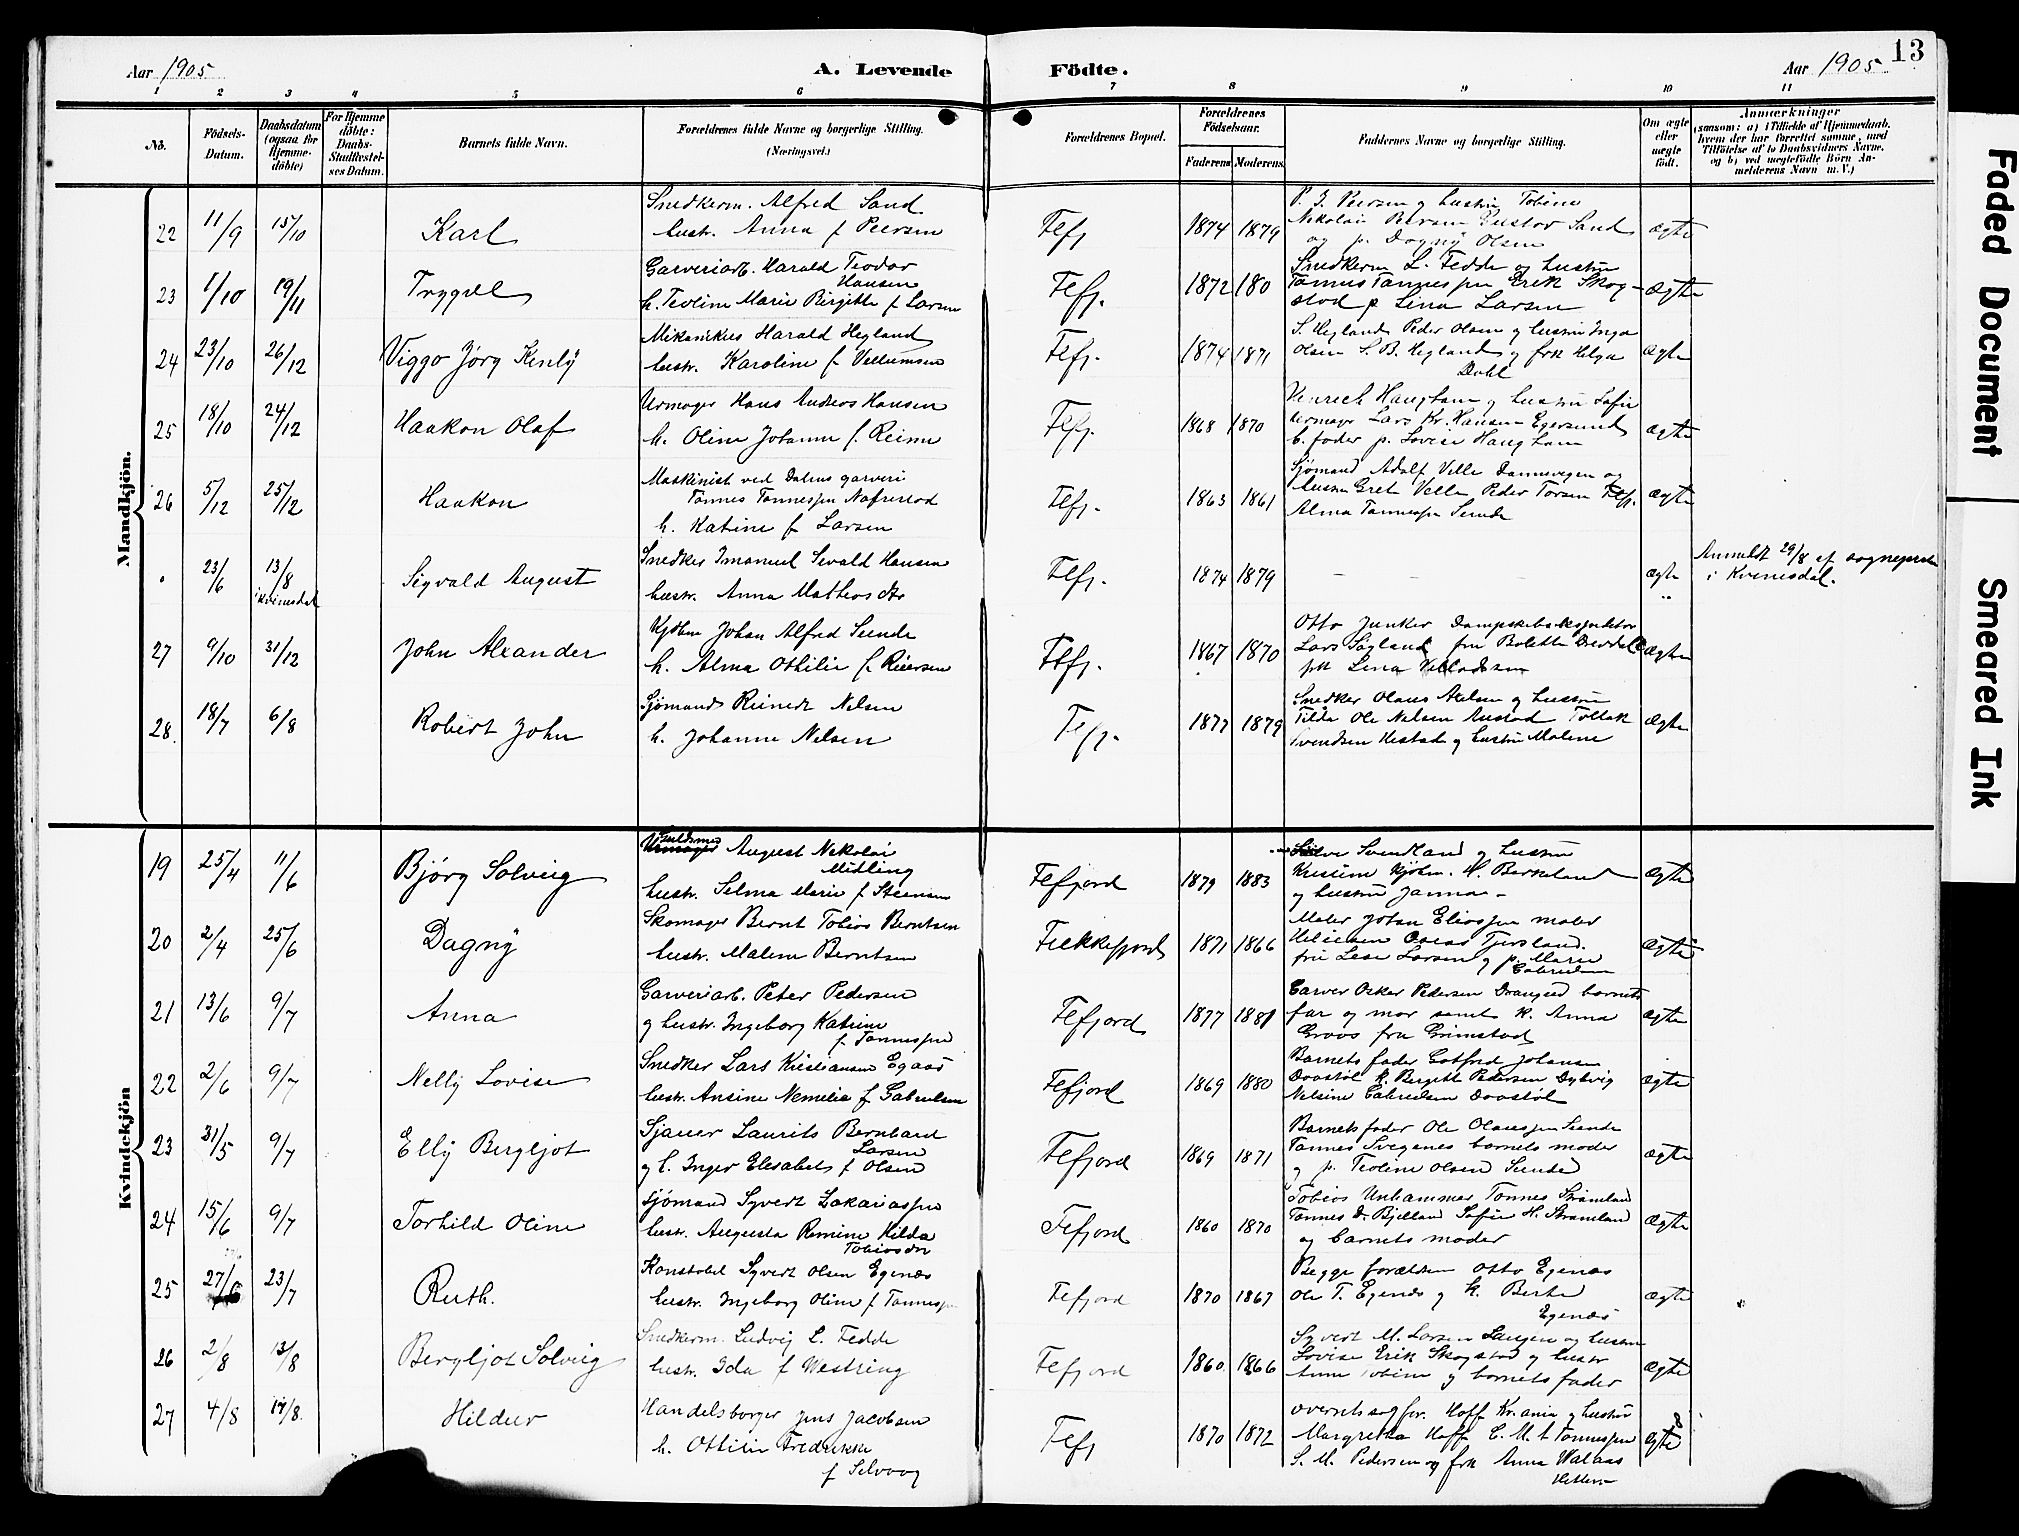 Aar 1905
A. Levende Födte.
Aar 1905
13
1 2 3 4 5 6 7 8 9 10 11
No.
Födsels-Datum.
Daabsdatum (ogsaa for Hjemme-döbte)
For Hjemme döbte: Daabs-Stadfæstel-ses Datum.
Barnets fulde Navn.
Forældrenes fulde Navne og borgerlige Stilling.
(Næringsvei.)
Forældrenes Bopæl.
Forældrenes Födselsaar.
Faderens Moderens
Faddernes Navne og borgerlige Stilling.
Om ægte eller uægte födt.
Anmærkninger
(saasom: a) i Tilfælde af Hjemmedaab, hvem der har forrettet samme, med Tilföielse af to Daabsvidners Navne, og b) ved uægtefödte Börn An-melderens Navn m. V.)
Mandkjön.
22 11/9 15/10 Karl
Snedkerm. Alfred Sand
hustr. Anna f Peersen
Fefj 1874 1879
P. J. Peersen og hustru Tobine
Nikolai Gustav Sand
og p. Dagny Olsen
ægte
23 1/10 19/11 Trygve
Garveriarb. Harald Teodor
Hansen
h. Teoline Marie Birgitte f Larsen
Fefj. 1872 180
Snedkerm L. Fedde og hustru
Tannes Tannessen Erik Skog-
stad p Lina Larsen
ægte
24 23/10 26/12 Viggo Jörg Kenly
Mekanikus Harald Hegland
hustr. Karoline f Vellumsen
Fefj. 1874 1871
S. Hegland Peder Olsen og hustru Inga
Olsen S. B. Hegland og frk Helga
Dahl
ægte
25 18/10 24/12 Haakon Olaf
Urmager Hans Andreas Hansen
h. Oline Johanne f. Reime
Fefj. 1868 1870
Henrich Haughom og hustru Sofie
Urmager Lars Kr. Hansen Egersund
b. fader p. Lovise Haughom
ægte
26 5/12 25/12 Haakon
Maskinist ved Dalens garveri
Tønnes Tønnessen
h. Katine f Larsen
Fefj. 1863 1861
Sjømand Adolf Velle og
hustru Grete Velle Peder Torsen Fefj.
Alma Tønnessen Sunde
ægte
" 23/6 13/8 i Kvinesdal Sigvald August
Snedker Imanuel Sevald Hansen
hustr. Anna Mathiasdtr
Fefj. 1874 1879
– – –
ægte
"
Anmeldt 29/8 af sogneprsten
i Kvinesdal.
27 9/10 31/12 John Alexander
Kjøbm Johan Alfred Sunde
h. Alma Othilie f Reiersen
Fefj. 1867 1870
Otto Junker
Lars Søyland fru Bolette
frk Lina
ægte
28. 18/7 6/8 Robert John
Sjømand Reinedt Nelsen
h. Johanne Nelsen
Fefj. 1877 1879
Snedker Olaus Axelsen og hustru
Tilda Ole Nelsen Austad Tollak
Svendsen Hestad og hustru Malene
ægte
Kvindekjön
19 25/4 11/6 Bjørg Solveig
Guldsmed August Nikolai
Midling
hustr. Selma Marie f Steensen
Fefjord 1879 1883
Svendland og hustru
Kristine Kjøbm. H. Berkeland
og hustru Janna –
ægte
20 2/4 25/6 Dagny
Skomager Bernt Tobias Berntsen
hustr. Malene Berntsen
Flekkefjord 1871 1866
Maler Johan Eliassen maler
Tjersland.
fru Lese Larsen og p. Marie
Gabrielsen
ægte
21 13/6 9/7 Anna
Garveriarb. Peter Pedersen
og hustr. Ingeborg Katrine
f. Tønnessen
Fefjord 1877 1881
Garver Oskar Pedersen Drangeid barnets
far og mor samt k. Anna
Groos fra Grimstad
ægte
22 2/6 9/7 Nelly Lovise
Snedker Lars Kristiansen Egaas
hustr. Ansine Nemelia f Gabrielsen
Fefjord 1869 1880
Barnets fader Gotfred Johansen
Doostøl k. Bergette Pedersen Dybvig
Nelsine Gabrielsen Doostøl
ægte
23 31/5 9/7 Elly Bergljot
Sjauer Laurits Bernhard
Larsen
og h. Inger Elesabet f Olsen
Fefjord 1869 1871
Barnets fader Ole Olaussen Sunde
Tønnes Svegenes barnets moder
og p. Teoline Olsen Sunde
ægte
24 15/6 9/7 Torhild Oline
Sjømand Syvert Zakariassen
hustr. Augusta Romine Hilda
Tobiasdtr
Fefjord 1860 1870
Tobias Unhammer Tønnes Strømland
Tønnes D. Bjelland Sofie H. Strømland
og barnets moder
ægte
25 27/6 23/7 Ruth.
Konstabel Syvert Olsen Egenæs
hustr. Ingeborg Oline f Tønnessen
Fefjord 1870 1867
Begge forældrene Otto Egenæs
Ole T. Egenæs og k. Berte
Egenæs
ægte
26 2/8 13/8 Bergljot Solveig
Snedkerm. Ludvig L. Fedde
hustr. Ida f Westring
Fefjord 1860 1866
Syvert M. Larsen Langen og husru
Lovise Erik Skogstad og hustr
Anne Tobine og barnets fader
ægte
27 4/8 14/8 Hildur
Handelsborger Jens Jacobsen
h. Ottilie Fredrikke
f Selvaag
Fefj 1870 1872
overretssagfør. Hoff Kr.ania og hustru
Margretha Hoff C. M. S Tønnessen
S. M. Pedersen og frk Anna Walaas
ægte
Faded Document
Smeared Ink